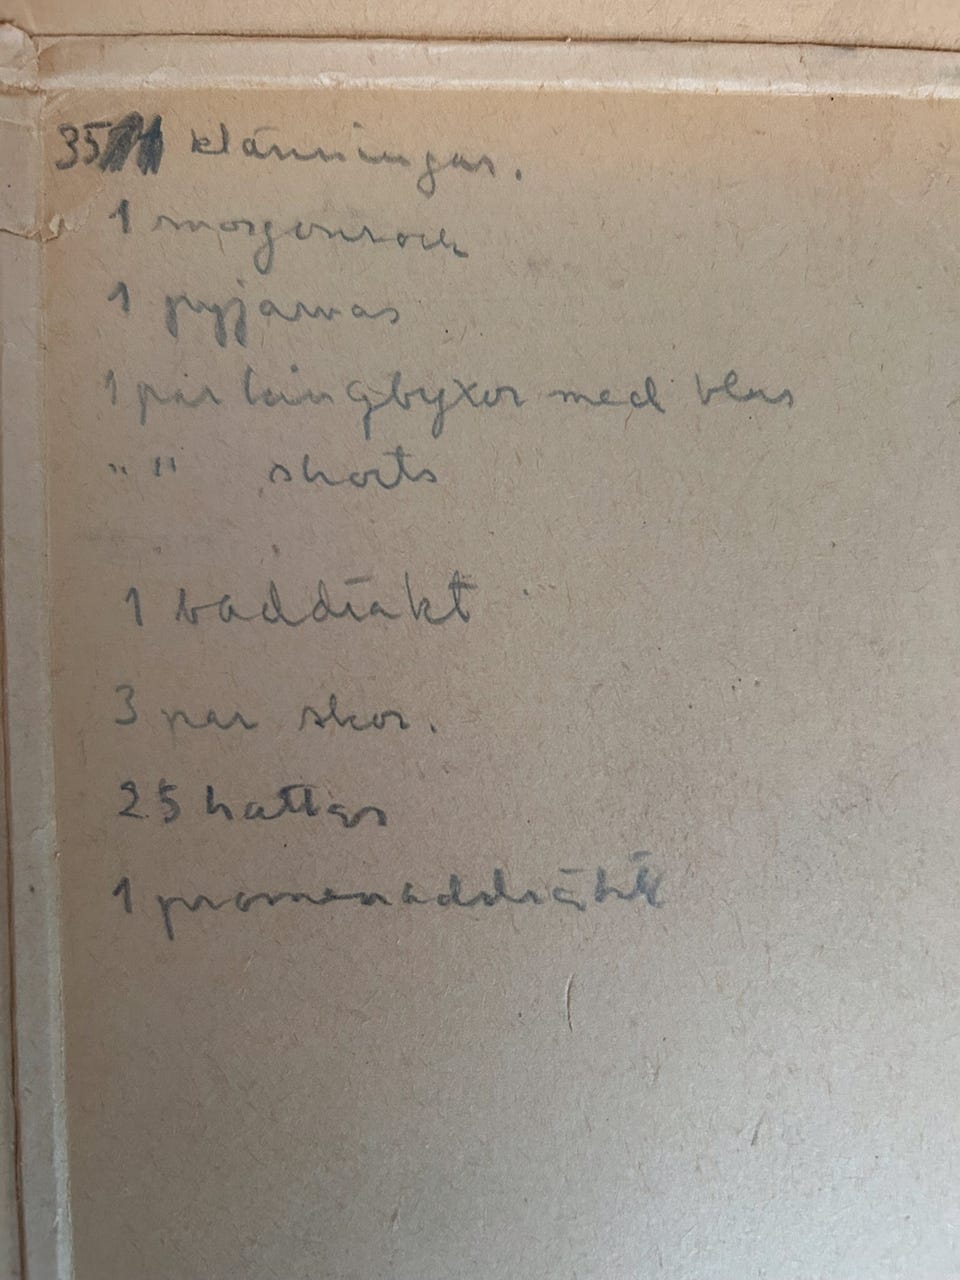 35 klänningar.
1 morgonrock
1 pyjamas
1 par långbyxor med blus
" " shorts
1 baddräkt
3 par skor.
25 hattar
1 promenaddräkt